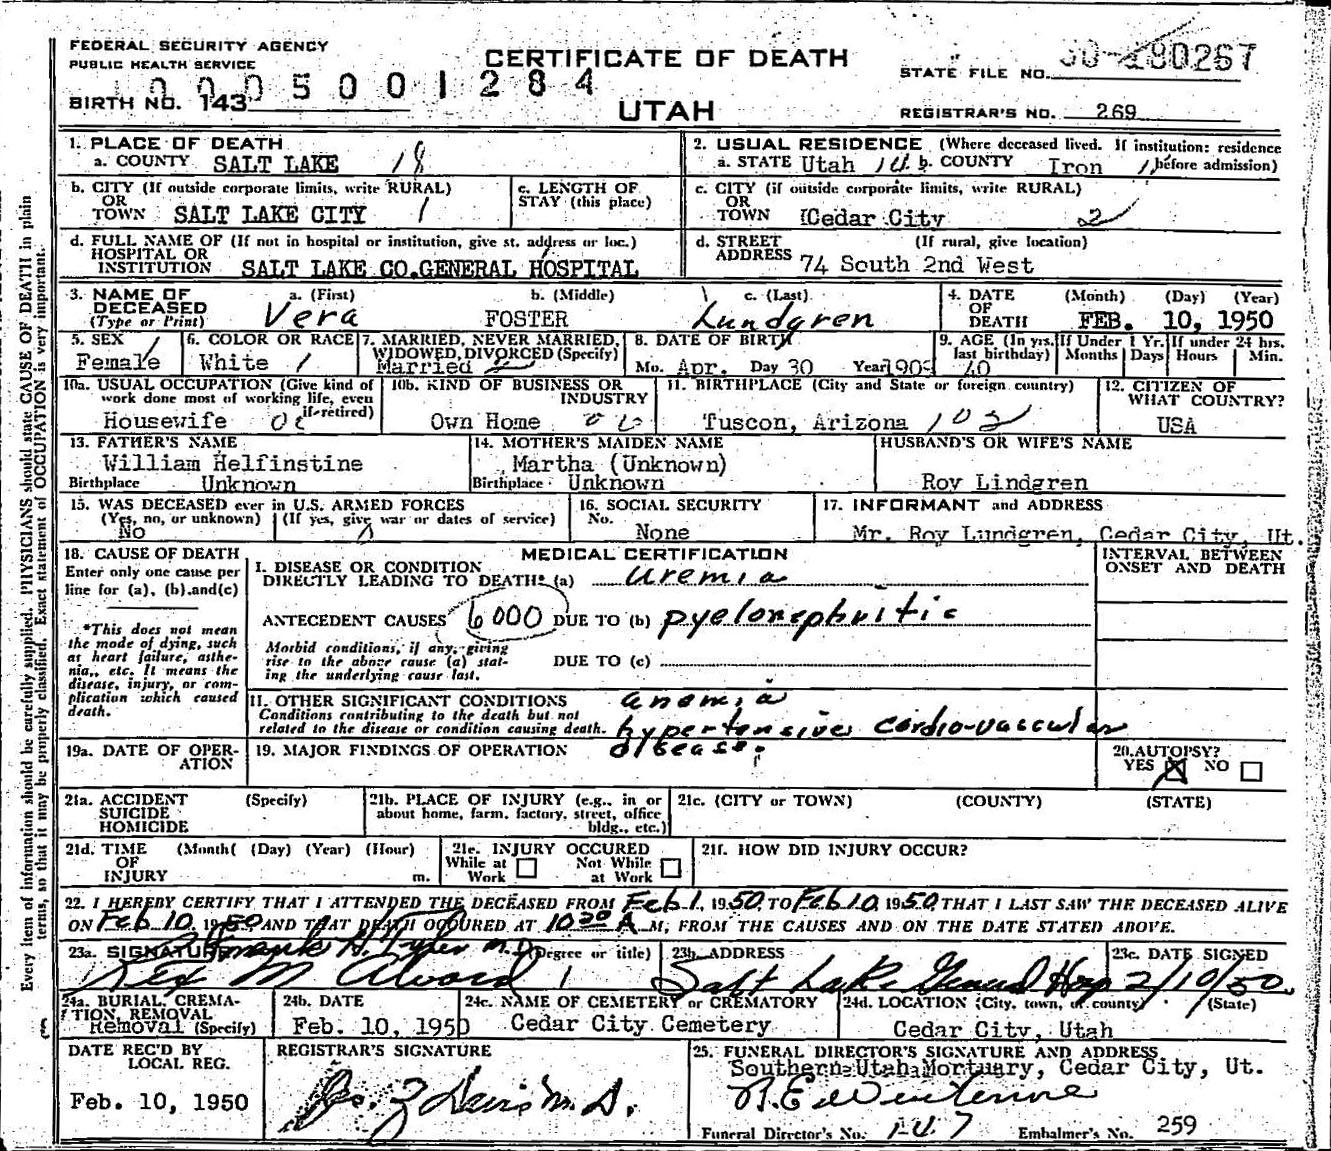 FEDERAL SECURITY AGENCY
PUBLIC HEALTH SERVICE
CERTIFICATE OF DEATH
STATE FILE NO. 50-180267
0005001284
BIRTH NO. 143
UTAH
REGISTRAR'S NO. 269
1. PLACE OF DEATH
a. COUNTY SALT LAKE 18
2. USUAL RESIDENCE (Where deceased lived. If institution: residence before admission)
a. STATE Utah b. COUNTY Iron
b. CITY (If outside corporate limits, write RURAL)
OR
TOWN SALT LAKE CITY 1
c. LENGTH OF
STAY (this place)
c. CITY (if outside corporate limits, write RURAL)
OR
TOWN Cedar City 2
d. FULL NAME OF (If not in hospital or institution, give st. address or loc.)
HOSPITAL OR
INSTITUTION SALT LAKE CO.GENERAL HOSPITAL
d. STREET (If rural, give location)
ADDRESS 74 South 2nd West
3. NAME OF DECEASED (Type or Print)
a. (First) b. (Middle) c. (Last)
Vera FOSTER Lundgren
4. DATE OF DEATH (Month) (Day) (Year)
FEB. 10, 1950
5. SEX Female
6. COLOR OR RACE White
7. MARRIED, NEVER MARRIED, WIDOWED, DIVORCED (Specify)
Married
8. DATE OF BIRTH
Mo. Apr. Day 30 Year 1909
9. AGE (In yrs. last birthday) 40
If Under 1 Yr. Months Days
If under 24 hrs. Hours Min.
10a. USUAL OCCUPATION (Give kind of work done most of working life, even if retired)
Housewife
10b. KIND OF BUSINESS OR INDUSTRY
Own Home
11. BIRTHPLACE (City and State or foreign country)
Tuscon, Arizona 102
12. CITIZEN OF WHAT COUNTRY?
USA
13. FATHER'S NAME
William Helfinstine
Birthplace Unknown
14. MOTHER'S MAIDEN NAME
Martha (Unknown)
Birthplace Unknown
HUSBAND'S OR WIFE'S NAME
Roy Lindgren
15. WAS DECEASED ever in U.S. ARMED FORCES
(Yes, no, or unknown) (If yes, give war or dates of service)
No
16. SOCIAL SECURITY No.
None
17. INFORMANT and ADDRESS
Mr. Roy Lundgren, Cedar City, Ut.
18. CAUSE OF DEATH
Enter only one cause per line for (a), (b), and (c)
*This does not mean the mode of dying, such as heart failure, asthenia, etc. It means the disease, injury, or complication which caused death.
MEDICAL CERTIFICATION
INTERVAL BETWEEN ONSET AND DEATH
I. DISEASE OR CONDITION
DIRECTLY LEADING TO DEATH* (a) uremia
ANTECEDENT CAUSES 6000 DUE TO (b) pyelonephritic
Morbid conditions, if any, giving rise to the above cause (a) stating the underlying cause last.
DUE TO (c)
II. OTHER SIGNIFICANT CONDITIONS
Conditions contributing to the death but not related to the disease or condition causing death.
anemia
hypertensive cardio-vascular
disease.
19a. DATE OF OPERATION
19. MAJOR FINDINGS OF OPERATION
20. AUTOPSY?
YES NO
21a. ACCIDENT SUICIDE HOMICIDE (Specify)
21b. PLACE OF INJURY (e.g., in or about home, farm, factory, street, office bldg., etc.)
21c. (CITY or TOWN) (COUNTY) (STATE)
21d. TIME OF INJURY (Month( (Day) (Year) (Hour) m.
21e. INJURY OCCURED
While at Work Not While at Work
21f. HOW DID INJURY OCCUR?
22. I HEREBY CERTIFY THAT I ATTENDED THE DECEASED FROM Feb 1, 1950, TO Feb 10, 1950, THAT I LAST SAW THE DECEASED ALIVE
ON Feb 10, 1950 AND THAT DEATH OCCURED AT 10 20 A M, FROM THE CAUSES AND ON THE DATE STATED ABOVE.
23a. SIGNATURE Frank H. Tyler M.D. (Degree or title)
Rex M Alvord
23b. ADDRESS
Salt Lake General Hosp
23c. DATE SIGNED
2/10/50
24a. BURIAL, CREMATION, REMOVAL (Specify)
Removal
24b. DATE
Feb. 10, 1950
24c. NAME OF CEMETERY or CREMATORY
Cedar City Cemetery
24d. LOCATION (City, town, or county) (State)
Cedar City, Utah
DATE REC'D BY LOCAL REG.
Feb. 10, 1950
REGISTRAR'S SIGNATURE
25. FUNERAL DIRECTOR'S SIGNATURE AND ADDRESS
Southern Utah Mortuary, Cedar City, Ut.
Funeral Director's No. 147 Embalmer's No. 259
Every item of information should be carefully supplied. PHYSICIANS should state CAUSE OF DEATH in plain
terms, so that it may be properly classified. Exact statement of OCCUPATION is very important.